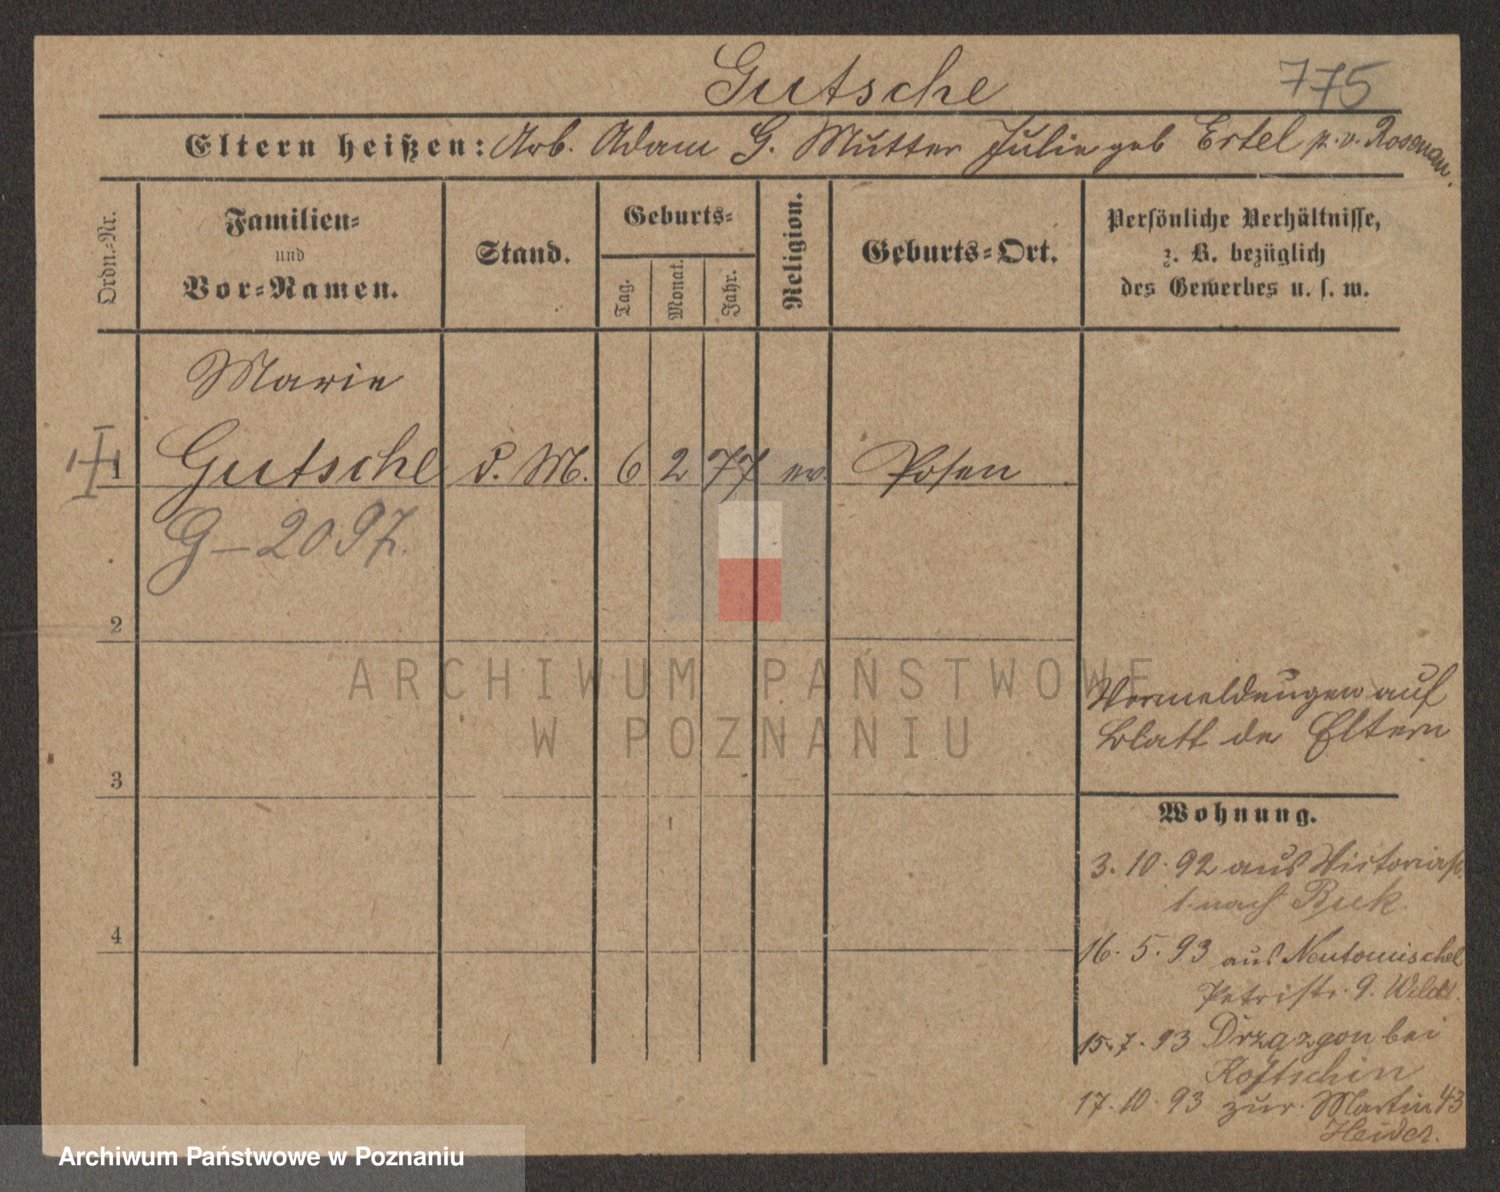 Gutsche
775
Eltern heißen: Arb. Adam G. Mutter Julie geb Ertel p. v. Rosenau.
Ordn.-Nr.
Familien-
und
Vor-Namen.
Stand.
Geburts-
Tag.
Monat.
Jahr.
Religion.
Geburts-Ort.
Persönliche Verhältnisse,
z. B. bezüglich
des Gewerbes u. s. w.
Marie
1 Gutsche d. M. 6 2 77 ev. Posen
G-2097.
2
3
4
Vormeldungen auf
Blatt der Eltern
Wohnung.
3. 10. 92 aus Victoriast.
1. nach Buk
16. 5. 93 aus Neutomischel
Petristr. 9.
15. 7. 93 Drzazgon bei
Kostschin
17. 10. 93 zur. Martin 43
Heider.
ARCHIWUM PAŃSTWOWE
W POZNANIU
Archiwum Państwowe w Poznaniu